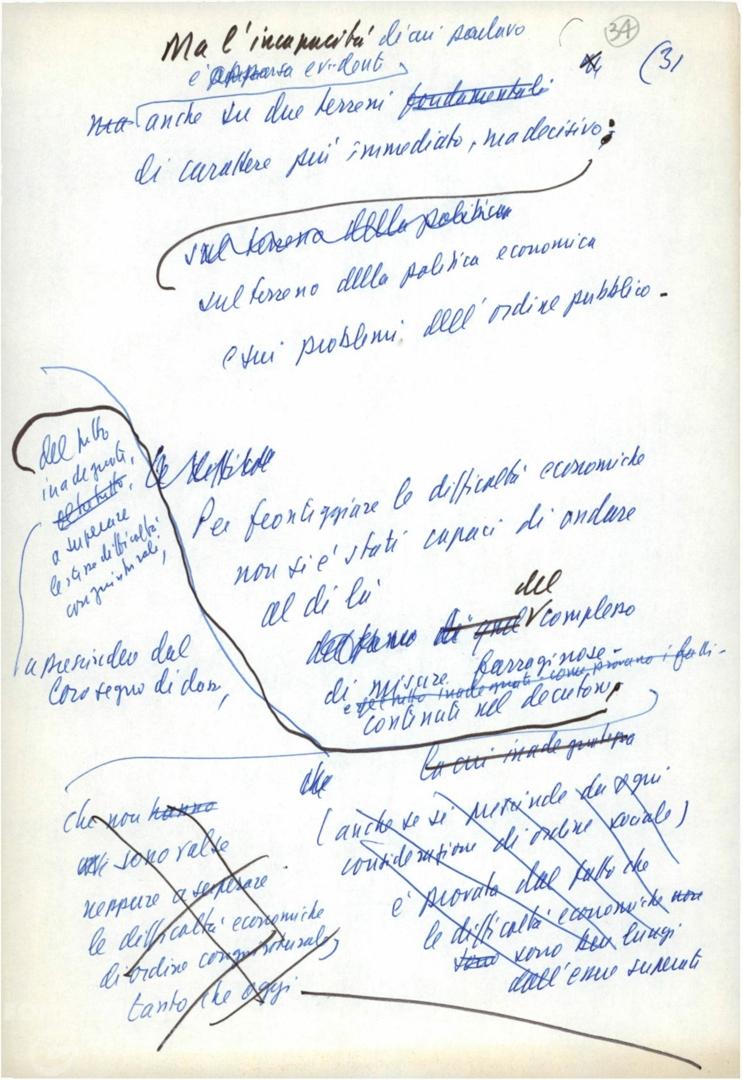 34
(31
Ma l'incapacità di cui parlavo
è apparsa evidente
ma anche su due terreni fondamentali
di carattere più immediato, ma decisivo:
sul terreno della politica
sul terreno della politica economica
e sui problemi dell'ordine pubblico -
del tutto
inadeguati,
del tutto,
a superare
le stesse difficoltà
congiunturali,
a prescindere dal
loro segno di
Per fronteggiare le difficoltà economiche
non si è stati capaci di andare
al di là
del
di quel complesso
di misure farraginose -
e del tutto inadeguate come provano i fatti -
contenuti nel decretone,
la cui inadeguatezza
che
che non hanno
sono valse
neppure a superare
le difficoltà economiche
di ordine congiunturale,
tanto che oggi
(anche se si prescinde da ogni
considerazione di ordine sociale)
è provata dal fatto che
le difficoltà economiche non
sono ben lungi
dall'essere superati